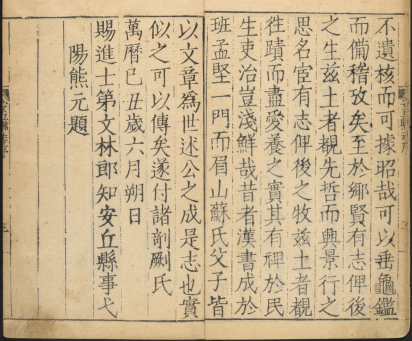 不遺核而可據昭哉可以垂龜鑑
而備稽攷矣至於鄉賢有志俾後
之生兹土者覩先哲而興景行之
思名宦有志俾後之牧兹土者覩
徃蹟而盡愛養之實其有裨於民
生吏治豈淺鮮哉昔者漢書成於
班孟堅一門而眉山蘇氏父子皆
以文章為世述公之成是志也實
似之可以傳矣遂付諸剞劂氏
萬曆己丑歲六月朔日
賜進士第文林郎知安丘縣事弋
陽熊元題